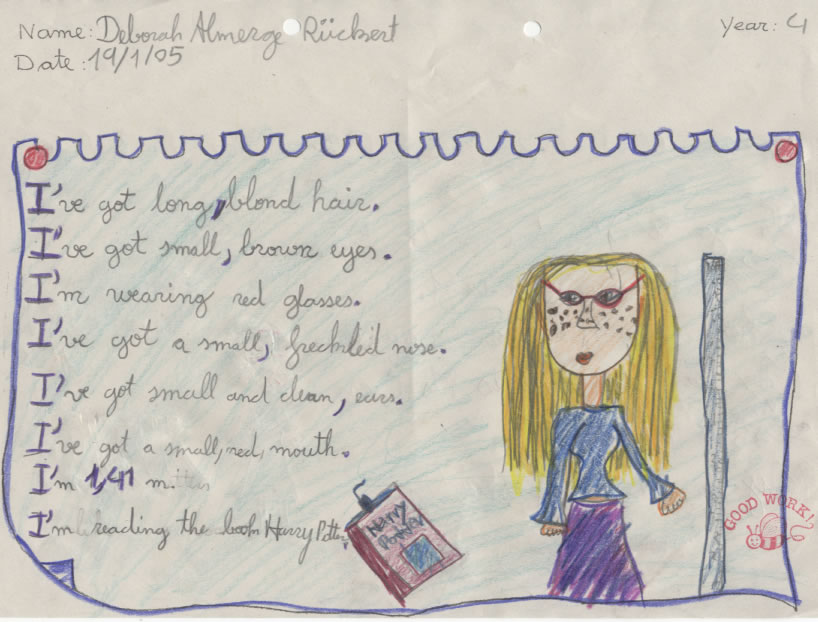 Name: Deborah Almerge Rückert Year: 4
Date: 19/1/05
I've got long, blond hair.
I've got small, brown eyes.
I'm wearing red glasses.
I've got a small, freckled nose.
I've got small and clean, ears.
I've got a small, red, mouth.
I'm 1,41 m.
I'm reading the book Harry Potter.
Harry
Potter
GOOD WORK!